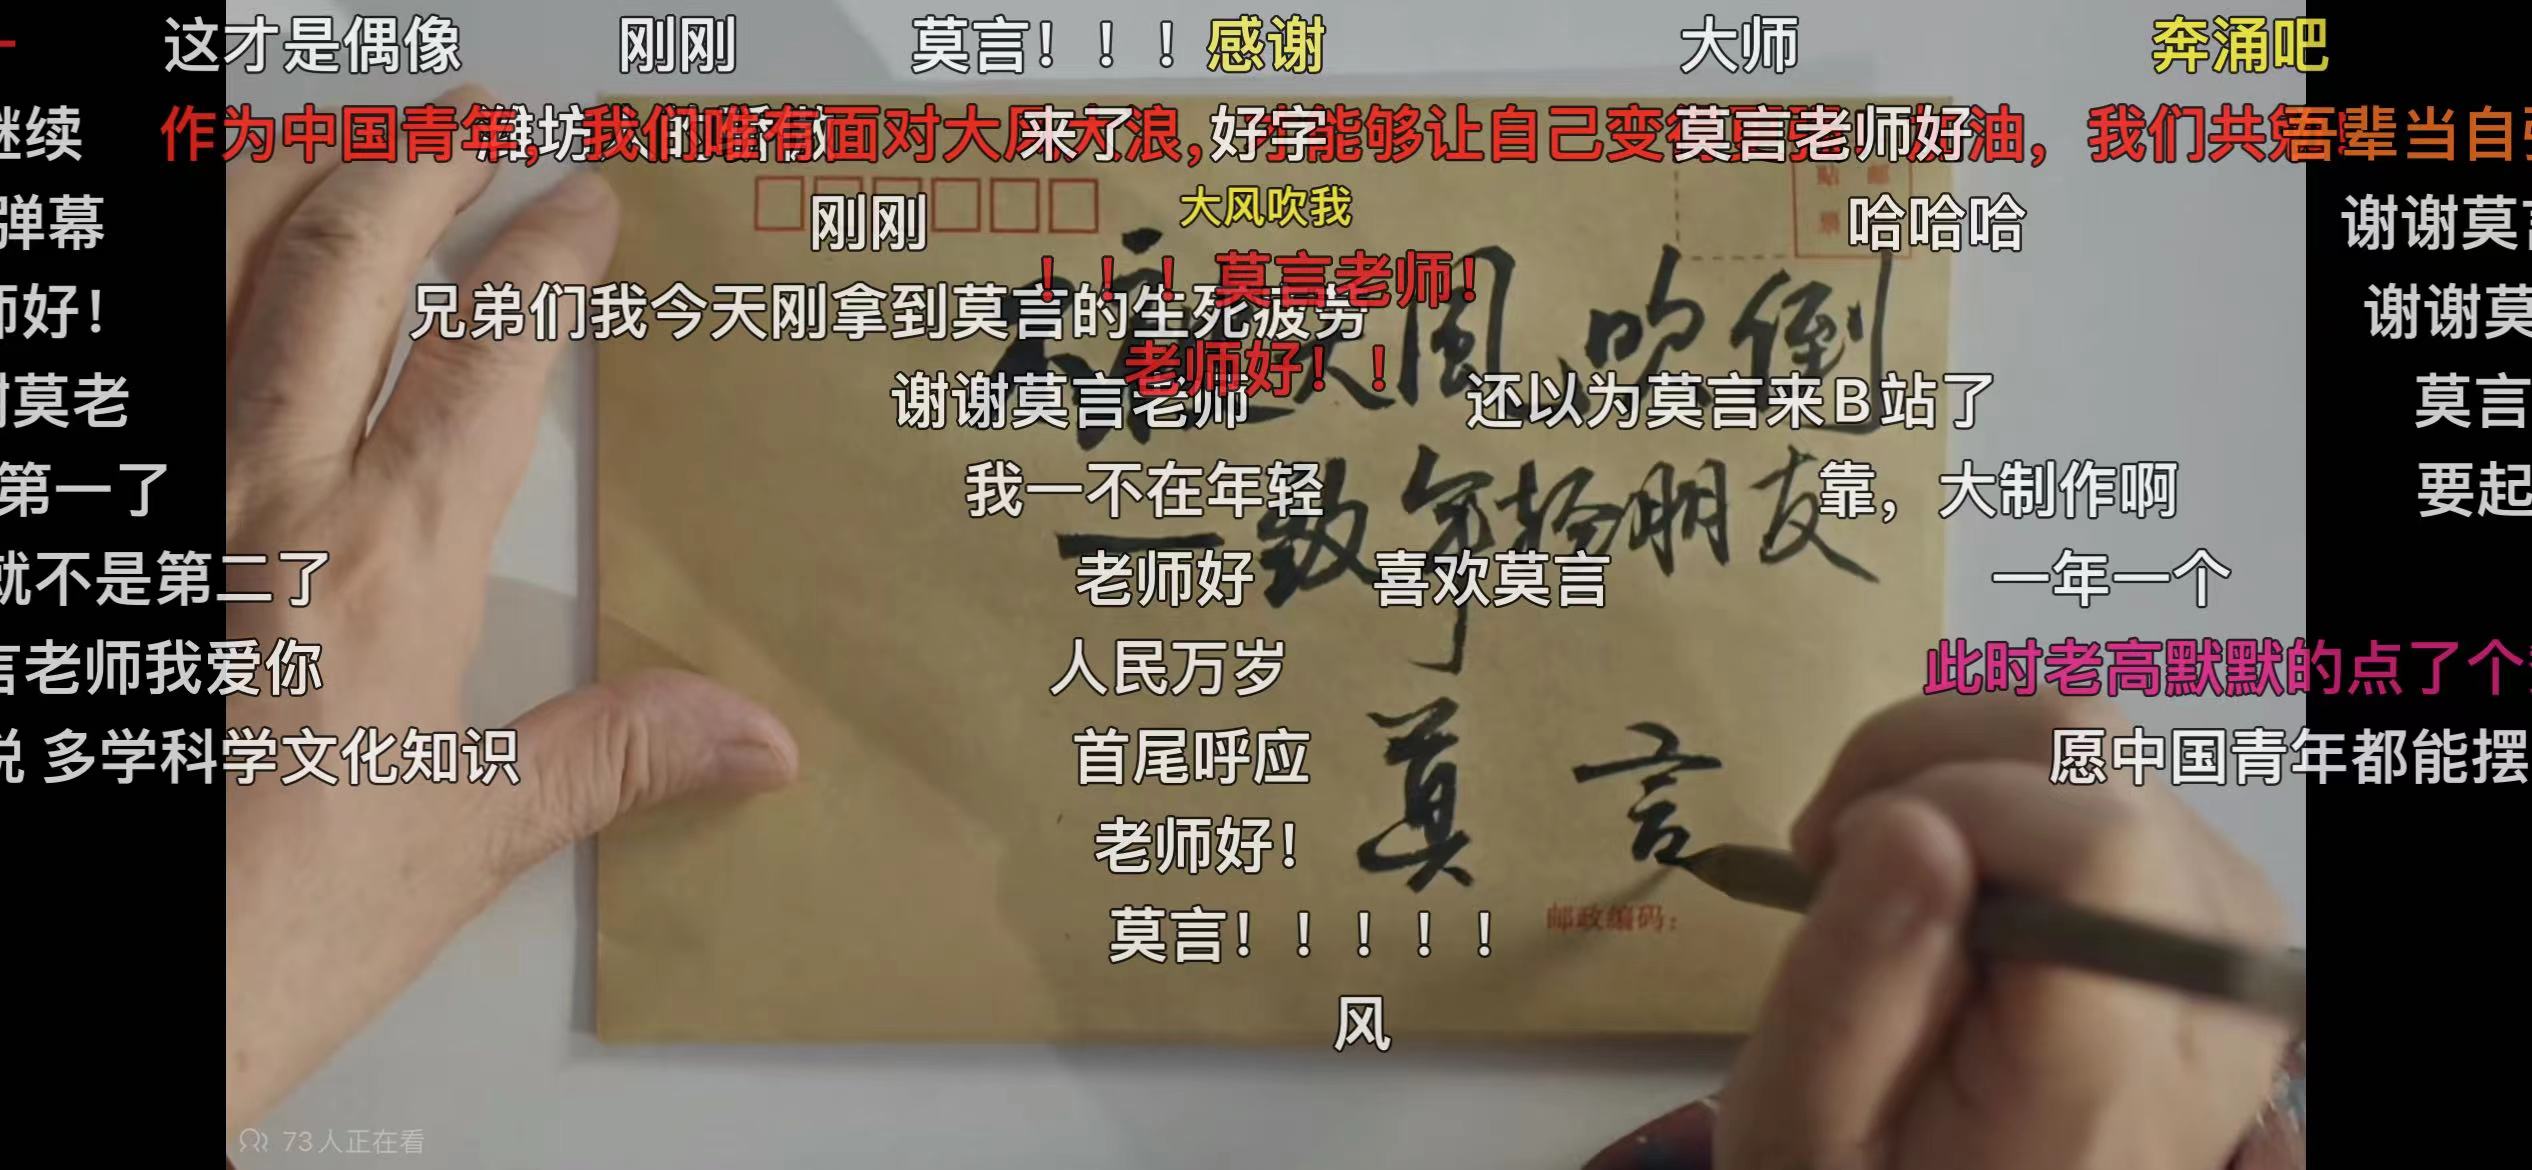 这才是偶像 刚刚 莫言！！！ 感谢 大师 奔涌吧
继续 作为中国青年，我们唯有面对大风大浪，才能够让自己变得 油，我们共勉！ 潍坊 来了 好字 莫言老师好 吾辈当自
弹幕 刚刚 大风吹我 哈哈哈 谢谢莫言
贴 邮 票
师好！ 兄弟们我今天刚拿到莫言的生死疲劳 ！！！莫言老师！ 谢谢莫
不被大风吹倒
谢莫老 谢谢莫言老师 老师好！！ 还以为莫言来B站了 莫言
第一了 我一不在年轻 靠，大制作啊 要起
——致年轻朋友
就不是第二了 老师好 喜欢莫言 一年一个
言老师我爱你 人民万岁 此时老高默默的点了个
说 多学科学文化知识 首尾呼应 愿中国青年都能摆
莫言
老师好！
邮政编码：
莫言！！！！！
风
73人正在看